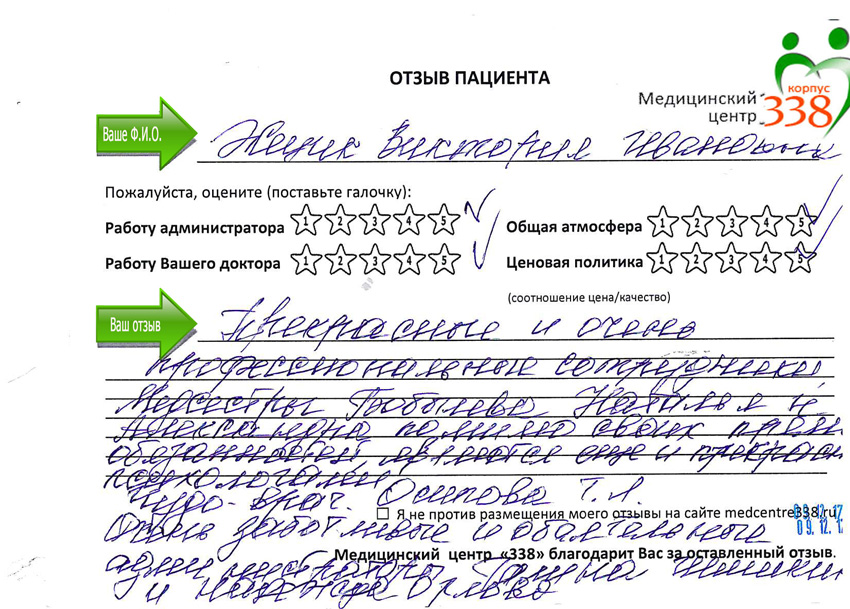 ОТЗЫВ ПАЦИЕНТА
Медицинский центр
корпус 338
Ваше Ф.И.О.
Виктория Ивановна
Пожалуйста, оцените (поставьте галочку):
Работу администратора 1 2 3 4 5
Общая атмосфера 1 2 3 4 5
Работу Вашего доктора 1 2 3 4 5
Ценовая политика 1 2 3 4 5
(соотношение цена/качество)
Ваш отзыв
Прекрасные и очень
профессиональные сотрудники
Медсестры Наталья и
Александра помимо своих прям
обязанностей являются еще и прекрасн
психологами
Чудо-врач. Осипова Т.Л.
Я не против размещения моего отзывы на сайте medcentre338.ru
09.12.17
09.12.1
Очень заботливые и обаятельные
Медицинский центр «338» благодарит Вас за оставленный отзыв.
администраторы
и Надежда Орлова